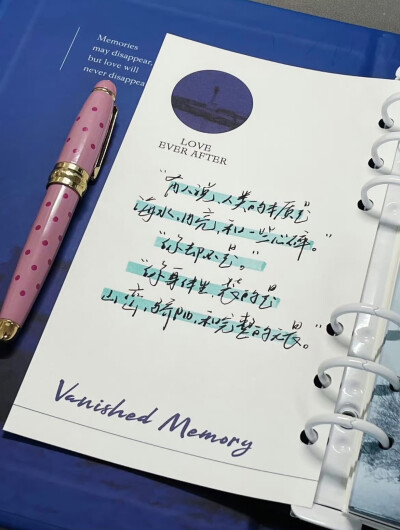 Memories
may disappear,
but love will
never disappea
LOVE
EVER AFTER
"有人说,人类的本质是
海水、月亮,和一些心碎。"
"你却不是。"
"你身体里,装的是
山峦,骄阳,和完整的
Vanished Memory